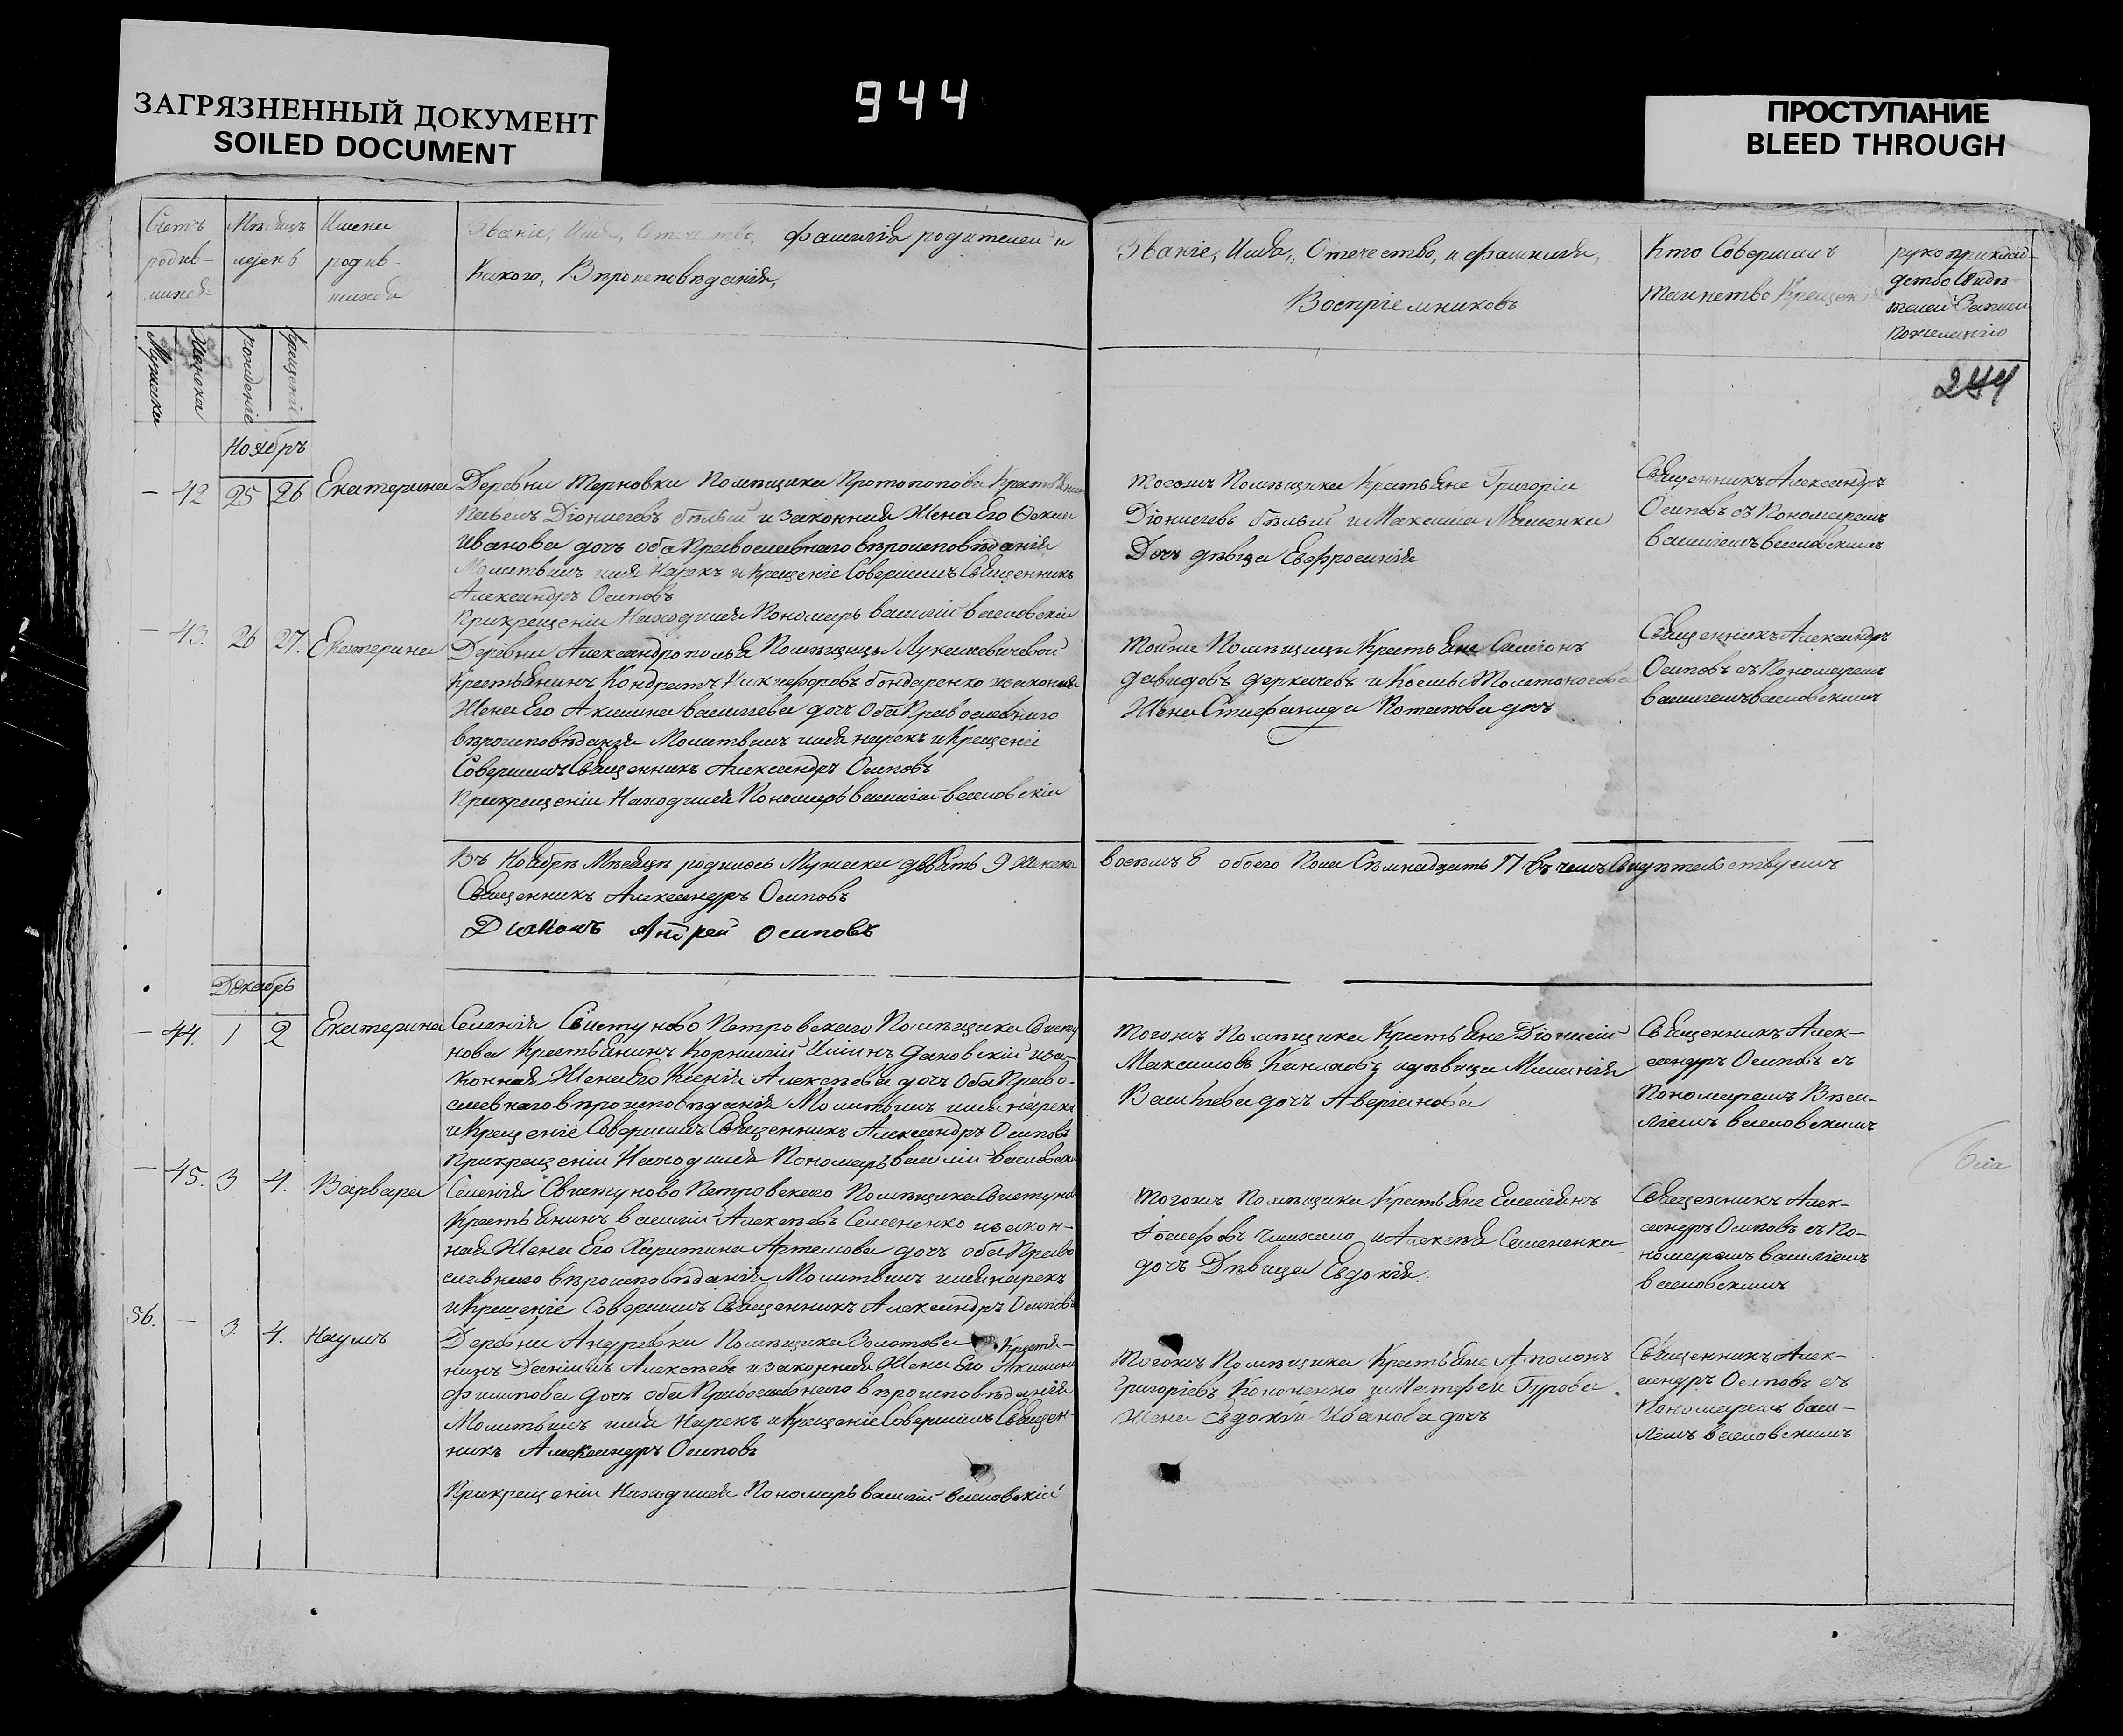 ЗАГРЯЗНЕННЫЙ ДОКУМЕНТ
SOILED DOCUMENT
944
ПРОСТУПАНИЕ
BLEED THROUGH
Счетъ
родив-
шихся
Мѣсяцъ
и день
Имена
родив-
шихся
Званіе, Имя, Отечество, фамилія родителей и
Какого, Вѣроисповѣданія,
Званіе, Имя, Отечество, и фамилія,
Воспріемниковъ
Кто Совершилъ
таинство Крещенія
рукоприклад-
детелей записи
По желанію
Мужска
Женска
рожденіе
крещеніе
244
Ноябрь
42 25 26 Екатерина
Деревни Терновки Помѣщика Протопопова Крестьянинъ
Павелъ Діонисіевъ бѣлый и Законная Жена Его Ѳекла
Иванова дочь оба Православнаго вѣроисповѣданія
Молитвилъ имя Нарекъ и Крещеніе Совершилъ Священникъ
Александръ Осиповъ
При крещеніи Находился Пономарь василій веселовскій
Тогожъ Помѣщика Крестьяне Григорій
Діонисіевъ бѣлый и Максима
Дочь дѣвица Евфросинія
Священникъ Александръ
Осиповъ съ Пономаремъ
василіемъ веселовскимъ
43. 26 27. Екатерина
Деревни Александрополья Помѣщицы Лукашевичевой
Крестьянинъ Кондратъ Никифоровъ бондаренко и законная
Жена Его Акилина васильева дочь Оба Православнаго
вѣроисповѣданія Молитвилъ имя нарекъ и Крещеніе
Совершилъ Священникъ Александръ Осиповъ
При крещеніи Находился Пономарь василій веселовскій
Тойже Помѣщицы Крестьяне Симеонъ
давидовъ деркачевъ и Косьмы
Жена Стефанида Потапова дочь
Священникъ Александръ
Осиповъ съ Пономаремъ
василіемъ веселовскимъ
Въ Ноябрѣ Мѣсяцѣ родилось Мужска девять 9 Женска
восемь 8 обоего Пола Семнадцать 17 въ чемъ Свидѣтельствуемъ
Священникъ Александръ Осиповъ
Диаконъ Андрей Осиповъ
Декабрь
44. 1 2 Екатерина
Селенія Свистуново Петровскаго Помѣщика Свисту
нова Крестьянинъ Корнилій дановскій иза-
конная Жена Его Ксенія Алексѣева дочь Оба Право-
славнаго вѣроисповѣданія Молитвилъ имя нарекъ
и Крещеніе Совершилъ Священникъ Александръ Осиповъ
При крещеніи Находился Пономарь василій веселовскій
Тогожъ Помѣщика Крестьяне Діонисій
Максимовъ и дѣвица Меланія
Васильева дочь Аверьянова
Священникъ Алек-
сандръ Осиповъ съ
Пономаремъ Васи-
ліемъ веселовскимъ
45. 3 4. Варвара
Селенія Свистуново Петровскаго Помѣщика Свистунова
Крестьянинъ василій Алексѣевъ Семененко и закон-
ная Жена Его Харитина Артемова дочь оба Право
славнаго вѣроисповѣданія Молитвилъ имя нарекъ
и Крещеніе Совершилъ Священникъ Александръ Осиповъ
Тогожъ Помѣщика Крестьяне Емеліянъ
Іосифовъ и Алексѣя Семененка
дочь Дѣвица Евдокія.
Священникъ Алек-
сандръ Осиповъ съ По-
номаремъ василіемъ
веселовскимъ
56. 3. 4. Наумъ
Деревни Андреевки Помѣщика Золотова Крестья-
нинъ Даніилъ Алексѣевъ и законная Жена Его Акилина
Филипова дочь оба Православнаго вѣроисповѣданія
Молитвилъ имя Нарекъ и Крещеніе Совершилъ Священ-
никъ Александръ Осиповъ
При крещеніи Находился Пономарь василій веселовскій
Тогожъ Помѣщика Крестьяне Аполонъ
григоріевъ Кононенко и Матфея Гурова
Жена Евдокія Иванова дочь
Священникъ Алек-
сандръ Осиповъ съ
Пономаремъ васи-
ліемъ веселовскимъ